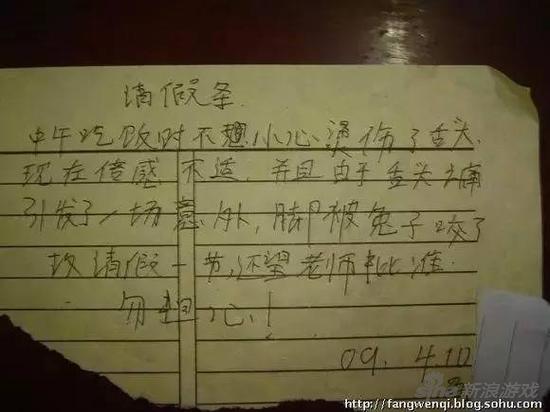 请假条
中午吃饭时不小心烫伤了舌头
现在倍感不适,并且由于舌头痛
引发了一场意外,脚被兔子咬了
故请假一节,还望老师批准.
勿担心!
09. 4.10
新浪游戏
http://fangwenqi.blog.sohu.com